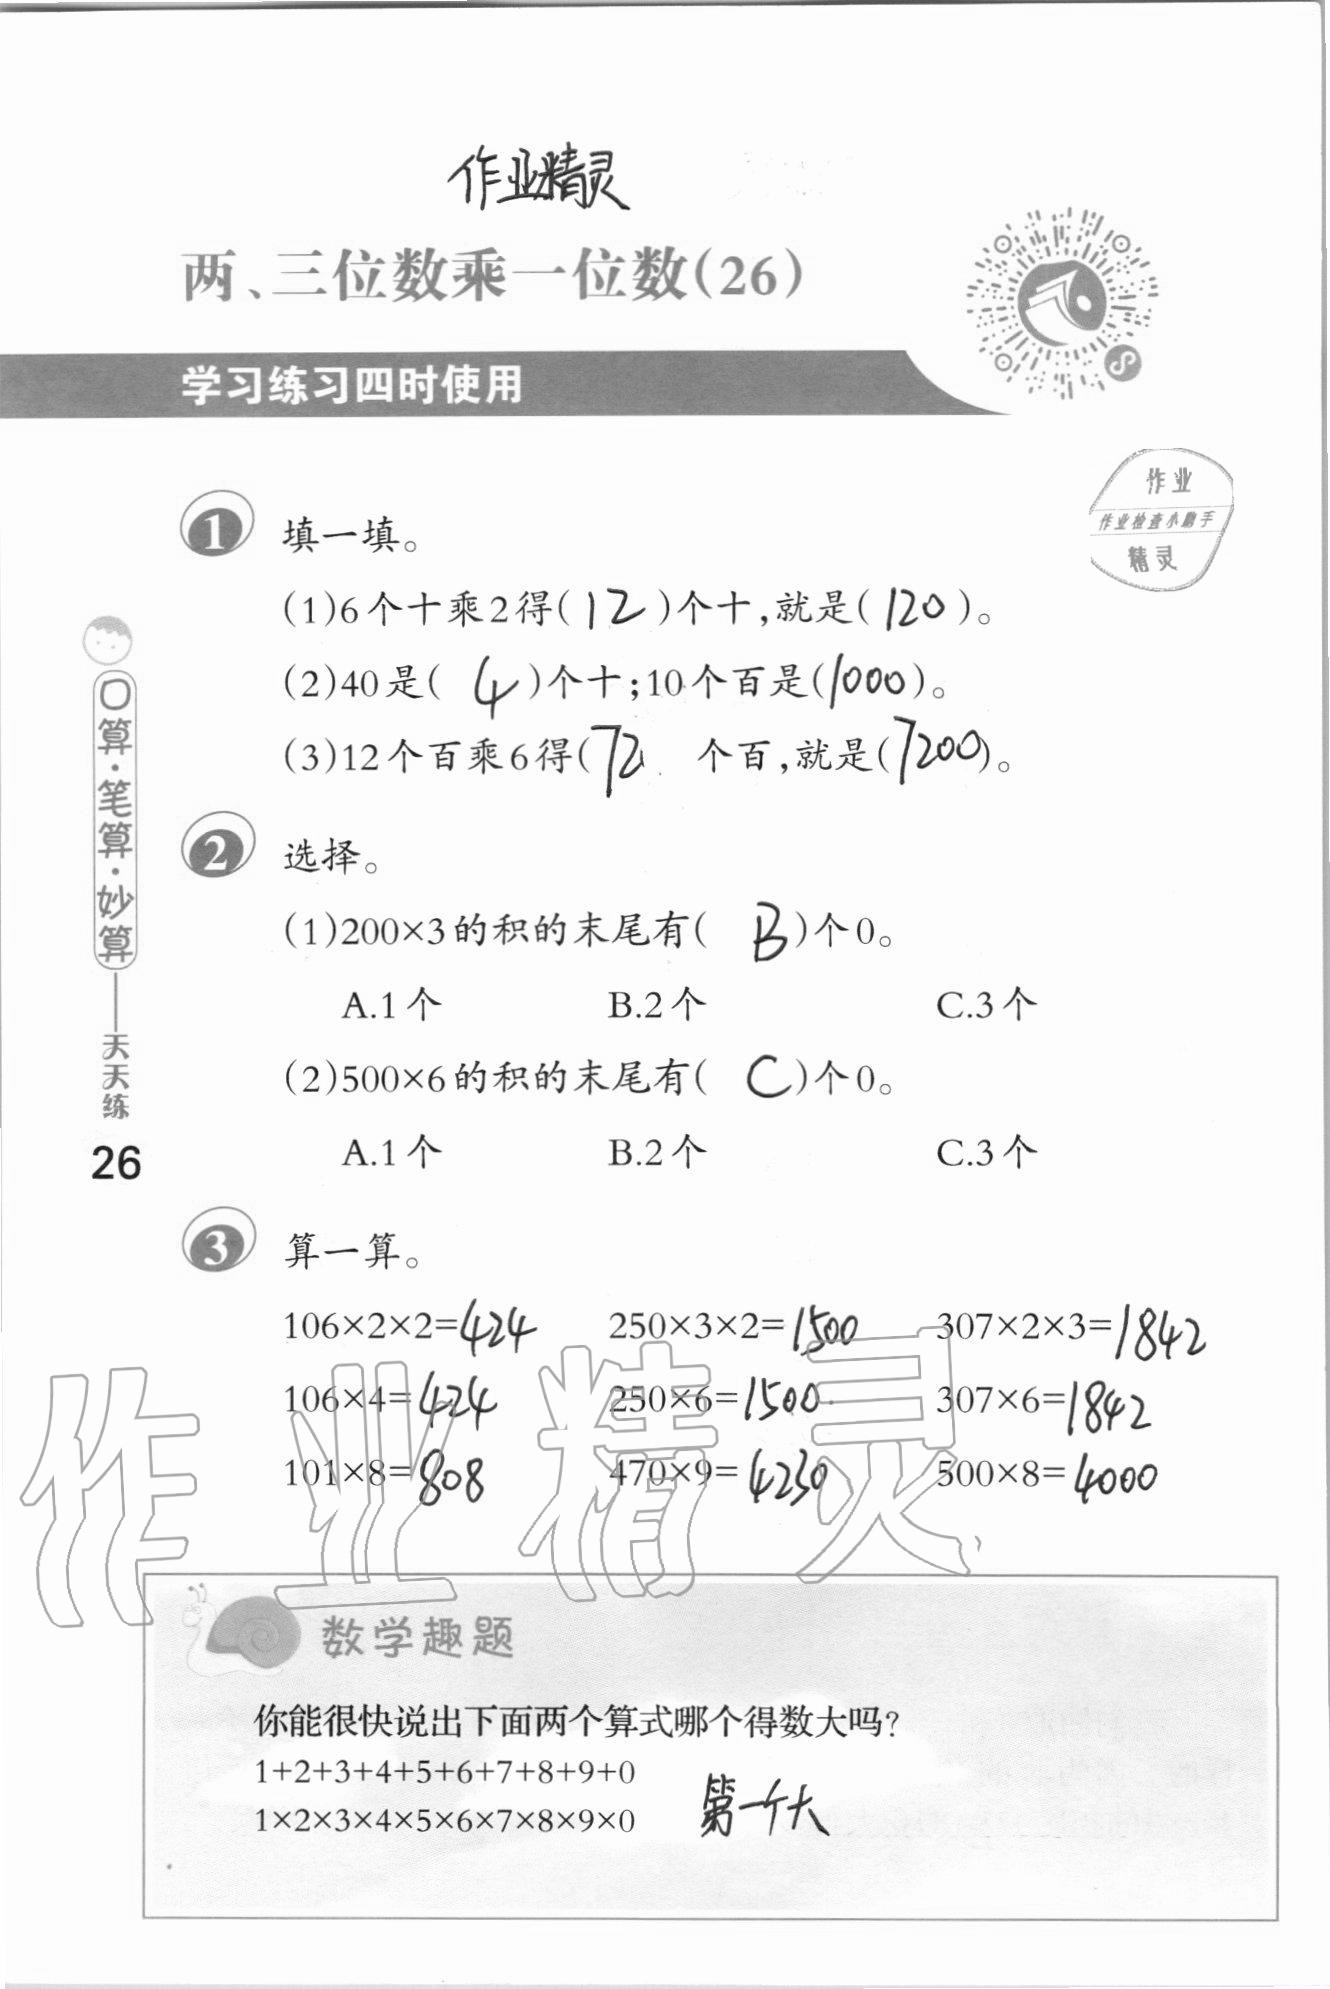 作业精灵
两、三位数乘一位数(26)
学习练习四时使用
作业
作业检查小助手
精灵
1 填一填。
(1)6个十乘2得( 12 )个十,就是( 120 )。
(2)40是( 4 )个十;10个百是(1000)。
(3)12个百乘6得(72 个百,就是(7200)。
2 选择。
(1)200×3的积的末尾有( B )个0。
A.1个 B.2个 C.3个
(2)500×6的积的末尾有( C )个0。
A.1个 B.2个 C.3个
3 算一算。
106×2×2=424 250×3×2=1500 307×2×3=1842
106×4=424 250×6=1500 307×6=1842
101×8=808 470×9=4230 500×8=4000
作业精灵
数学趣题
你能很快说出下面两个算式哪个得数大吗?
1+2+3+4+5+6+7+8+9+0
1×2×3×4×5×6×7×8×9×0 第一个大
口算·笔算·妙算——天天练
26